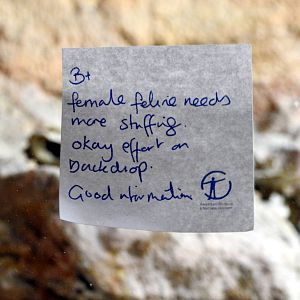 B+
female feline needs
more stuffing.
okay effort on
backdrop.
Good information